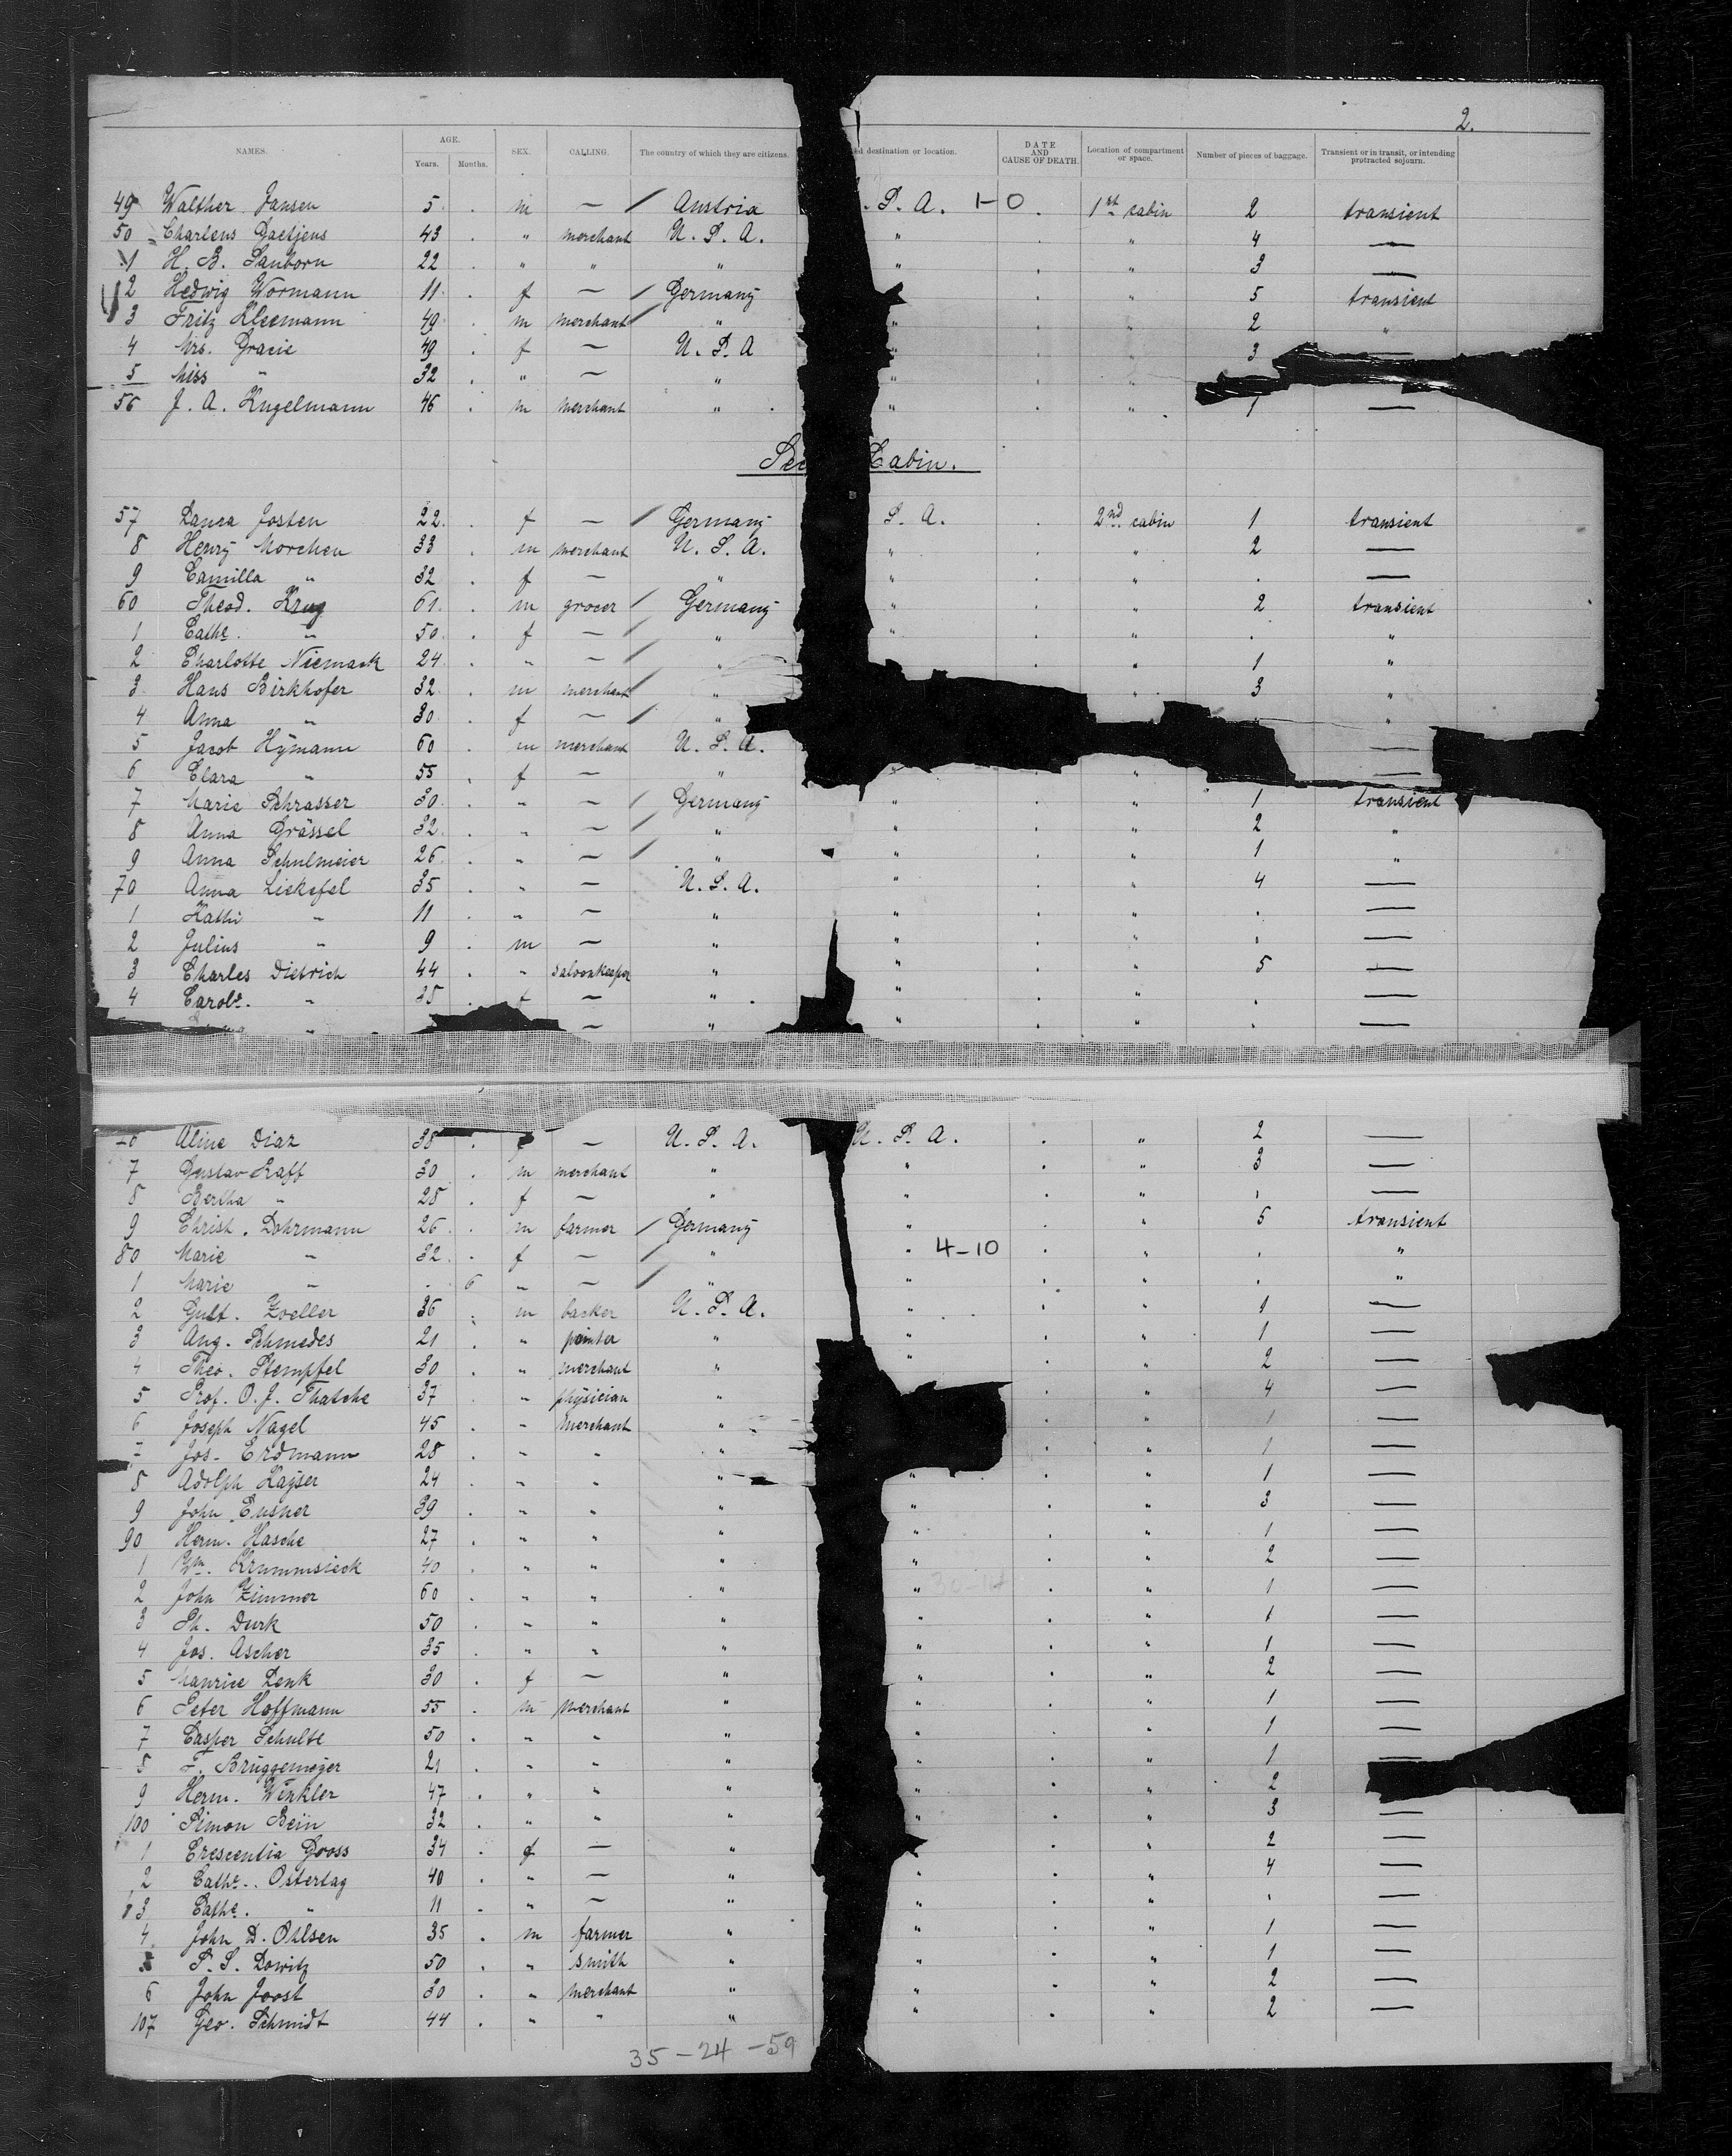 2.
NAMES. AGE. Years. Months. SEX. CALLING. The country of which they are citizens. destination or location. DATE AND CAUSE OF DEATH. Location of compartment or space. Number of pieces of baggage. Transient or in transit, or intending protracted sojourn.
49 Walther Jansen 5 . m — / Austria . S. A. 1-0 . 1st cabin 2 transient
50 Charlens Daetjens 43 . " merchant U. S. A. " . " 4 —
1 H. B. Sanborn 22 . " " " " . " 3 —
2 Hedwig Wormann 11 . f — / Germany . " 5 transient
3 Fritz Kleemann 49 . m merchant / " " . " 2 "
4 Mrs. Gracie 49 . f — U. S. A " . " 3 —
5 Miss " 32 . " — " " . "
56 J. A. Kugelmann 46 . m merchant " " . " 1 —
Cabin.
57 Laura Josten 22 . f — / Germany S. A. . 2nd cabin 1 transient
8 Henry Morchen 33 . m merchant U. S. A. " . " 2 —
9 Camilla " 32 . f — " " . " . —
60 Theod. Krug 61 . m grocer / Germany " . " 2 transient
1 Cathe. " 50 . f — / " " . " . "
2 Charlotte Niemack 24 . " — / " . " 1 "
3 Hans Birkhofer 32 . m merchant / " " 3 "
4 Anna " 30 . f — / " "
5 Jacob Hymann 60 . m merchant U. S. A. —
6 Clara " 55 . f — " " —
7 Marie Schrasser 30 . " — / Germany " . " 1 transient
8 Anna Grässel 32 . " — / " " . " 2 "
9 Anna Schulmeier 26 . " — / " " . " 1 "
70 Anna Liekefel 35 . " — U. S. A. " . " 4 —
1 Kathi " 11 . " — " " . " . —
2 Julius " 9 . m — " " . " . —
3 Charles Dietrich 44 . " saloonkeeper " " . " 5 —
4 Carole. " 35 . f — " " . " . —
" — " " . " . —
6 Aline Diaz 38 . f — U. S. A. U. S. A. . " 2 —
7 Gustav Raff 30 . m merchant " " . " 3 —
8 Bertha " 28 . f — " " . " . —
9 Christ. Dohrmann 26 . m farmer / Germany " . " 5 transient
80 Marie " 32 . f — / " " 4-10 . " . "
1 Marie " . 6 " — / " " . " . "
2 Gust. Zoeller 36 . m barker U. S. A. " . " 1 —
3 Aug. Schmedes 21 . " painter " " . " 1 —
4 Theo. Stempfel 30 . " merchant " " . " 2 —
5 Prof. O. J. Thatche 37 . " physician " . " 4 —
6 Joseph Nagel 45 . " merchant " . " 1 —
7 Jos. Erdmann 28 . " " " . " 1 —
8 Adolph Kayser 24 . " " " " . " 1 —
9 John Eusner 39 . " " " " . " 3 —
90 Herm. Hasche 27 . " " " " . " 1 —
1 Wm. Krummsieck 40 . " " " " . " 2 —
2 John Zimmer 60 . " " " " . " 1 —
3 Ph. Durk 50 . " " " " . " 1 —
4 Jos. Ascher 35 . " " " " . " 1 —
5 Maurice Denk 30 . f — " " . " 2 —
6 Peter Hoffmann 55 . m merchant " " . " 1 —
7 Casper Schulte 50 . " " " " . " 1 —
8 F. Brüggemeyer 21 . " " " " . " 1 —
9 Herm. Winkler 47 . " " " " . " 2
100 Simon Bein 32 . " " " " . " 3 —
1 Crescentia Gross 34 . f — " . " 2 —
2 Cathe. Ostertag 40 . " — " " . " 4 —
3 Cathe. " 11 . " — " " . " . —
4 John D. Ohlsen 35 . m farmer " " . " 1 —
5 P. S. Dowitz 50 . " smith " " . " 1 —
6 John Joost 30 . " merchant " " . " 2 —
107 Geo. Schmidt 44 . " " " " . " 2 —
35-24-59